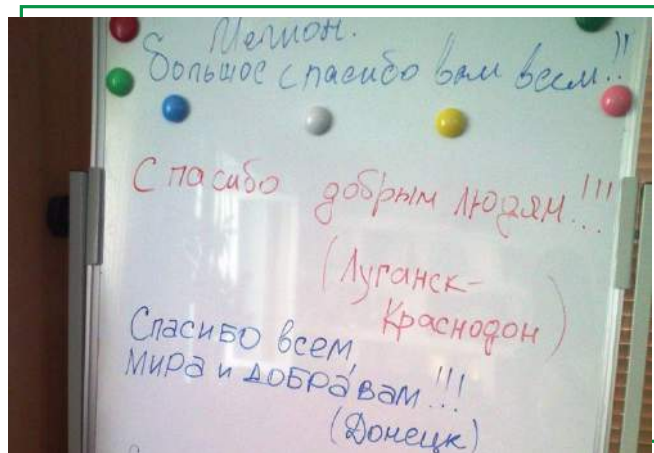 Мегион.
Большое спасибо вам всем!!
Спасибо добрым людям!!!
(Луганск-
Краснодон)
Спасибо всем
Мира и добра вам!!!
(Донецк)